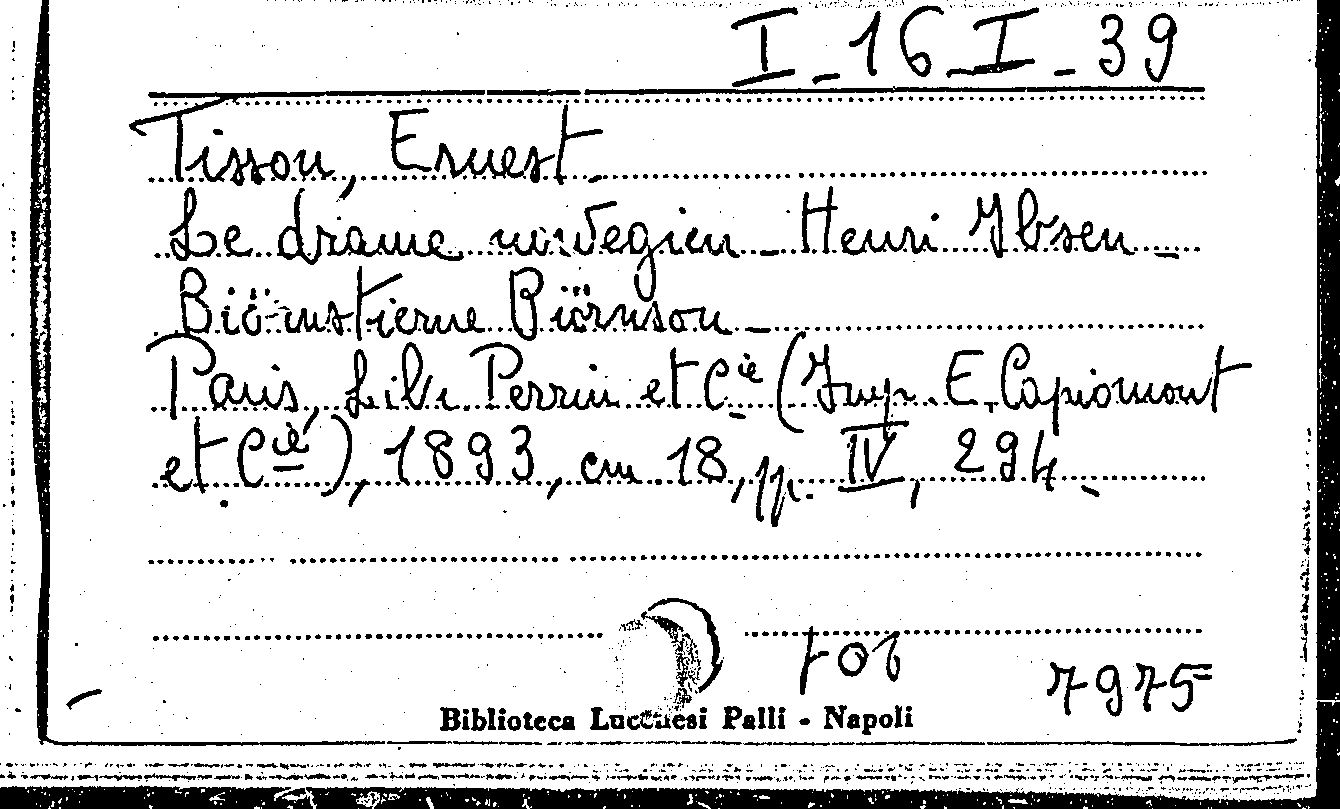 I_16_I_39
Tisson, Ernest.
Le drame norvegien_ Henri Ibsen_
Biörnstierne Biörnson_
Paris, Libr. Perrin et Cie (Imp. E. Capiomont
et Cie), 1893, cm 18, pp. IV, 294_
7975
Biblioteca Lucchesi Palli - Napoli